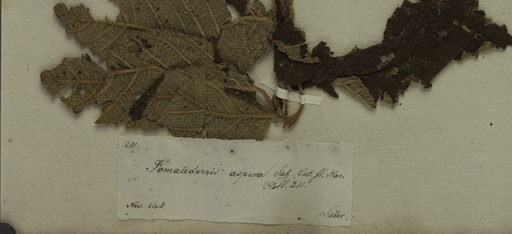 211.
Pomatoderris aspera Sieb. Cat. fl. Nov.
Holl. 211.
Nov. Holl.
Sieber.